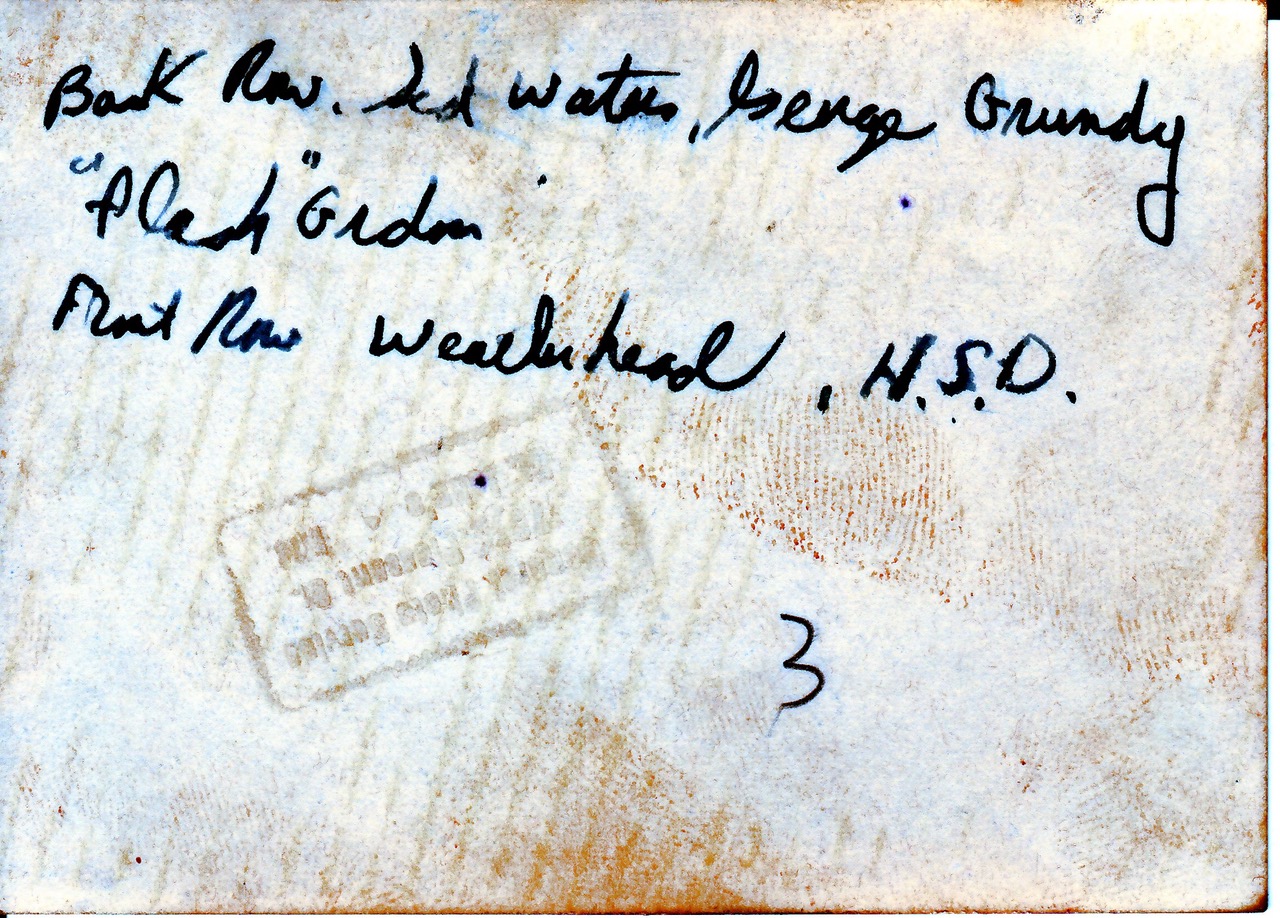 Back Row. Ted Waters, George Grundy
"Flash" Grdon
Front Row Weatherhead, H.S.D.
3